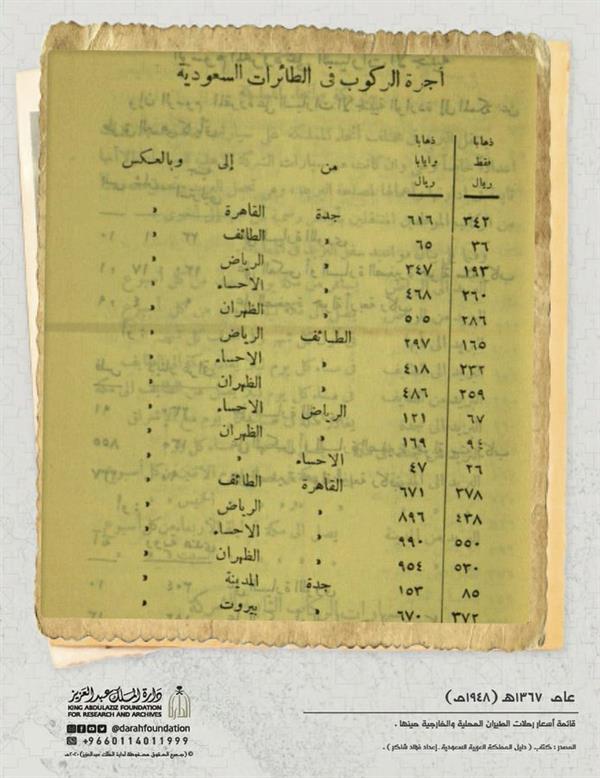 أجرة الركوب فى الطائرات السعودية
ذهابا ذهابا
فقط وايابا من إلى وبالعكس
ريال ريال
٣٤٢ ٦١٦ جدة القاهرة "
٣٦ ٦٥ " الطائف "
١٩٣ ٣٤٧ " الرياض "
٢٦٠ ٤٦٨ " الاحساء "
٢٨٦ ٥١٥ " الظهران "
١٦٥ ٢٩٧ الطائف الرياض "
٢٣٢ ٤١٨ " الاحساء "
٢٥٩ ٤٨٦ " الظهران "
٦٧ ١٢١ الرياض الاحساء "
٩٤ ١٦٩ " الظهران "
٢٦ ٤٧ الاحساء " "
٣٧٨ ٦٧١ القاهرة الطائف "
٤٣٨ ٨٩٦ " الرياض "
٥٥٠ ٩٩٠ " الاحساء "
٥٣٠ ٩٥٤ " الظهران "
٨٥ ١٥٣ جدة المدينة "
٣٧٢ ٦٧٠ " بيروت "
عام ١٣٦٧هـ (١٩٤٨م)
قائمة أسعار رحلات الطيران المحلية والخارجية حينها .
المصدر : كتاب ( دليل المملكة العربية السعودية . إعداد فؤاد شاكر ) .
دارة الملك عبدالعزيز
KING ABDULAZIZ FOUNDATION
FOR RESEARCH AND ARCHIVES
@darahfoundation
+9660114011999
© (جميع الحقوق محفوظة لدارة الملك عبدالعزيز) ٢٠٢٠م